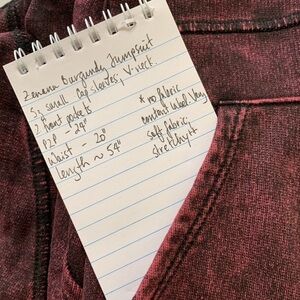 Zenana Burgundy Jumpsuit
S, small Cap sleeves, V-neck.
2 front pockets
P2P - 29"
Waist - 28"
Length ~ 54"
* no fabric
content label. Very
soft fabric,
stretchy